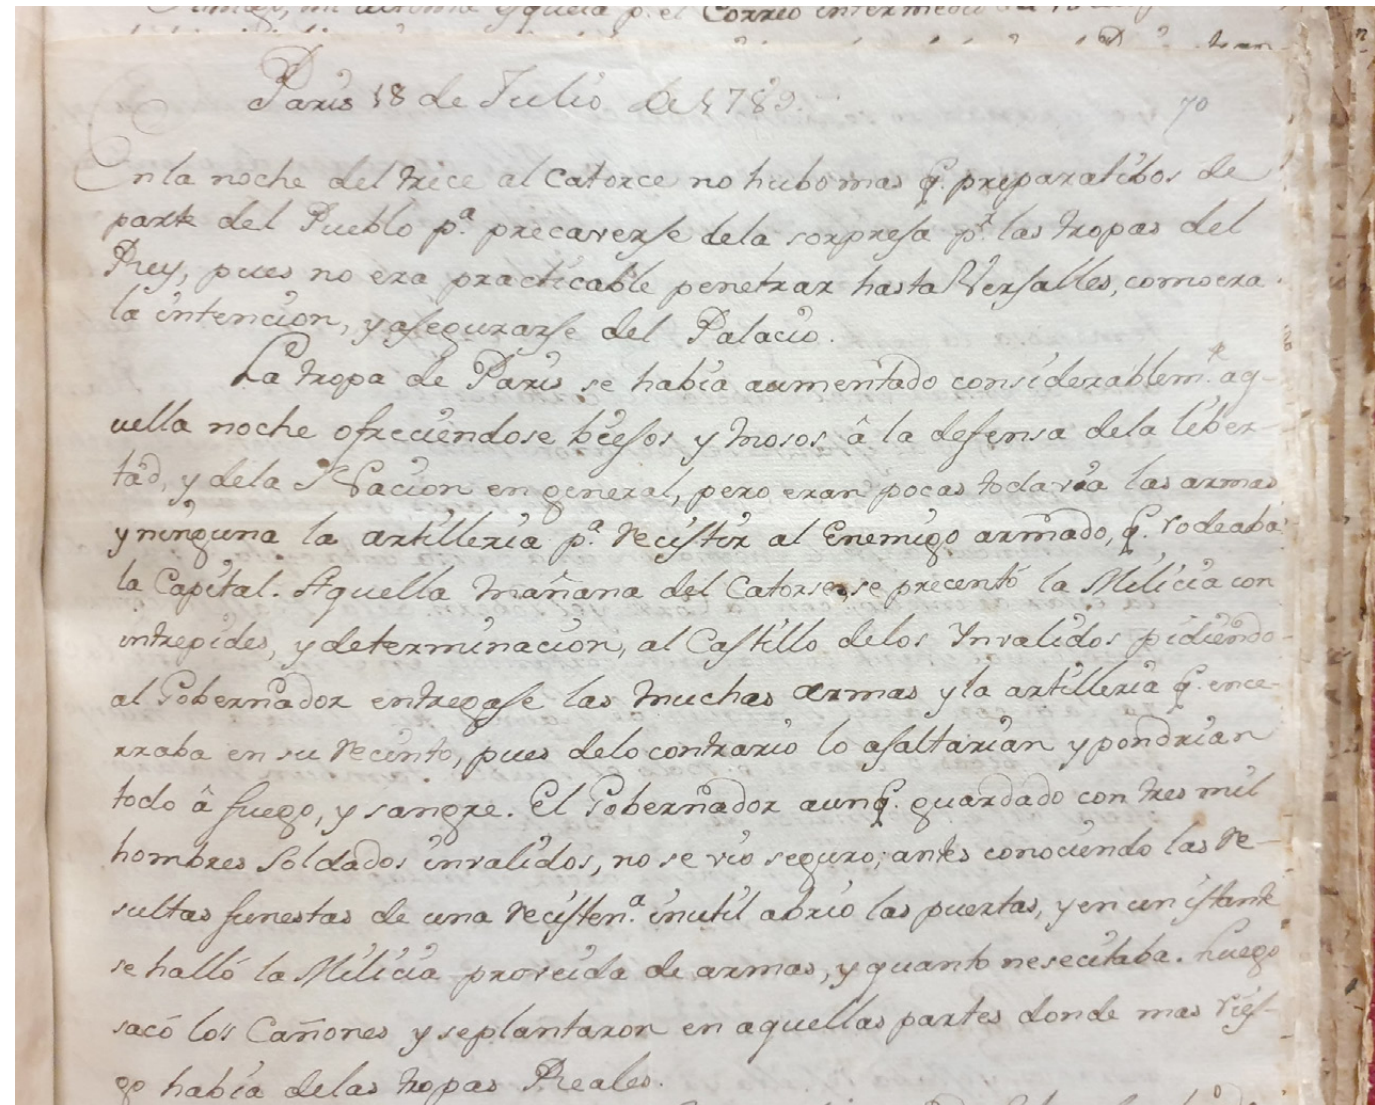 Correo intermedio
Paris 18 de Julio de 1789.
70
En la noche del trece al Catorce no hubo mas q. preparatibos de
parte del Pueblo pª. precaverse dela sorpresa pr. las tropas del
Rey, pues no era practicable penetrar hasta Versalles, como era
la intencion, y asegurarse del Palacio.
La tropa de Paris se habia aumentado considerablemte. aq-
uella noche ofreciendose biejos y mosos â la defensa dela liber-
tad, y dela Nacion en general, pero eran pocas todavia las armas
y ninguna la artilleria pª. recistir al Enemigo armado, q. rodeaba
la Capital. Aquella mañana del Catorse, se precentó la Milicia con
intrepides, y determinacion, al Castillo delos Ynvalidos pidiendo
al Gobernador entregase las muchas armas y la artilleria q. ence-
rraba en su recinto, pues delo contrario lo asaltarian y pondrian
todo â fuego, y sangre. El Gobernador aunq. guardado con tres mil
hombres Soldados invalidos, no se vio seguro; antes conociendo las re-
sultas funestas de una recistenª. inutil abrio las puertas, y en un istante
se halló la Milicia proveida de armas, y quanto nesecitaba. Luego
sacó los Cañones y se plantaron en aquellas partes donde mas ries-
go habia delas tropas Reales.